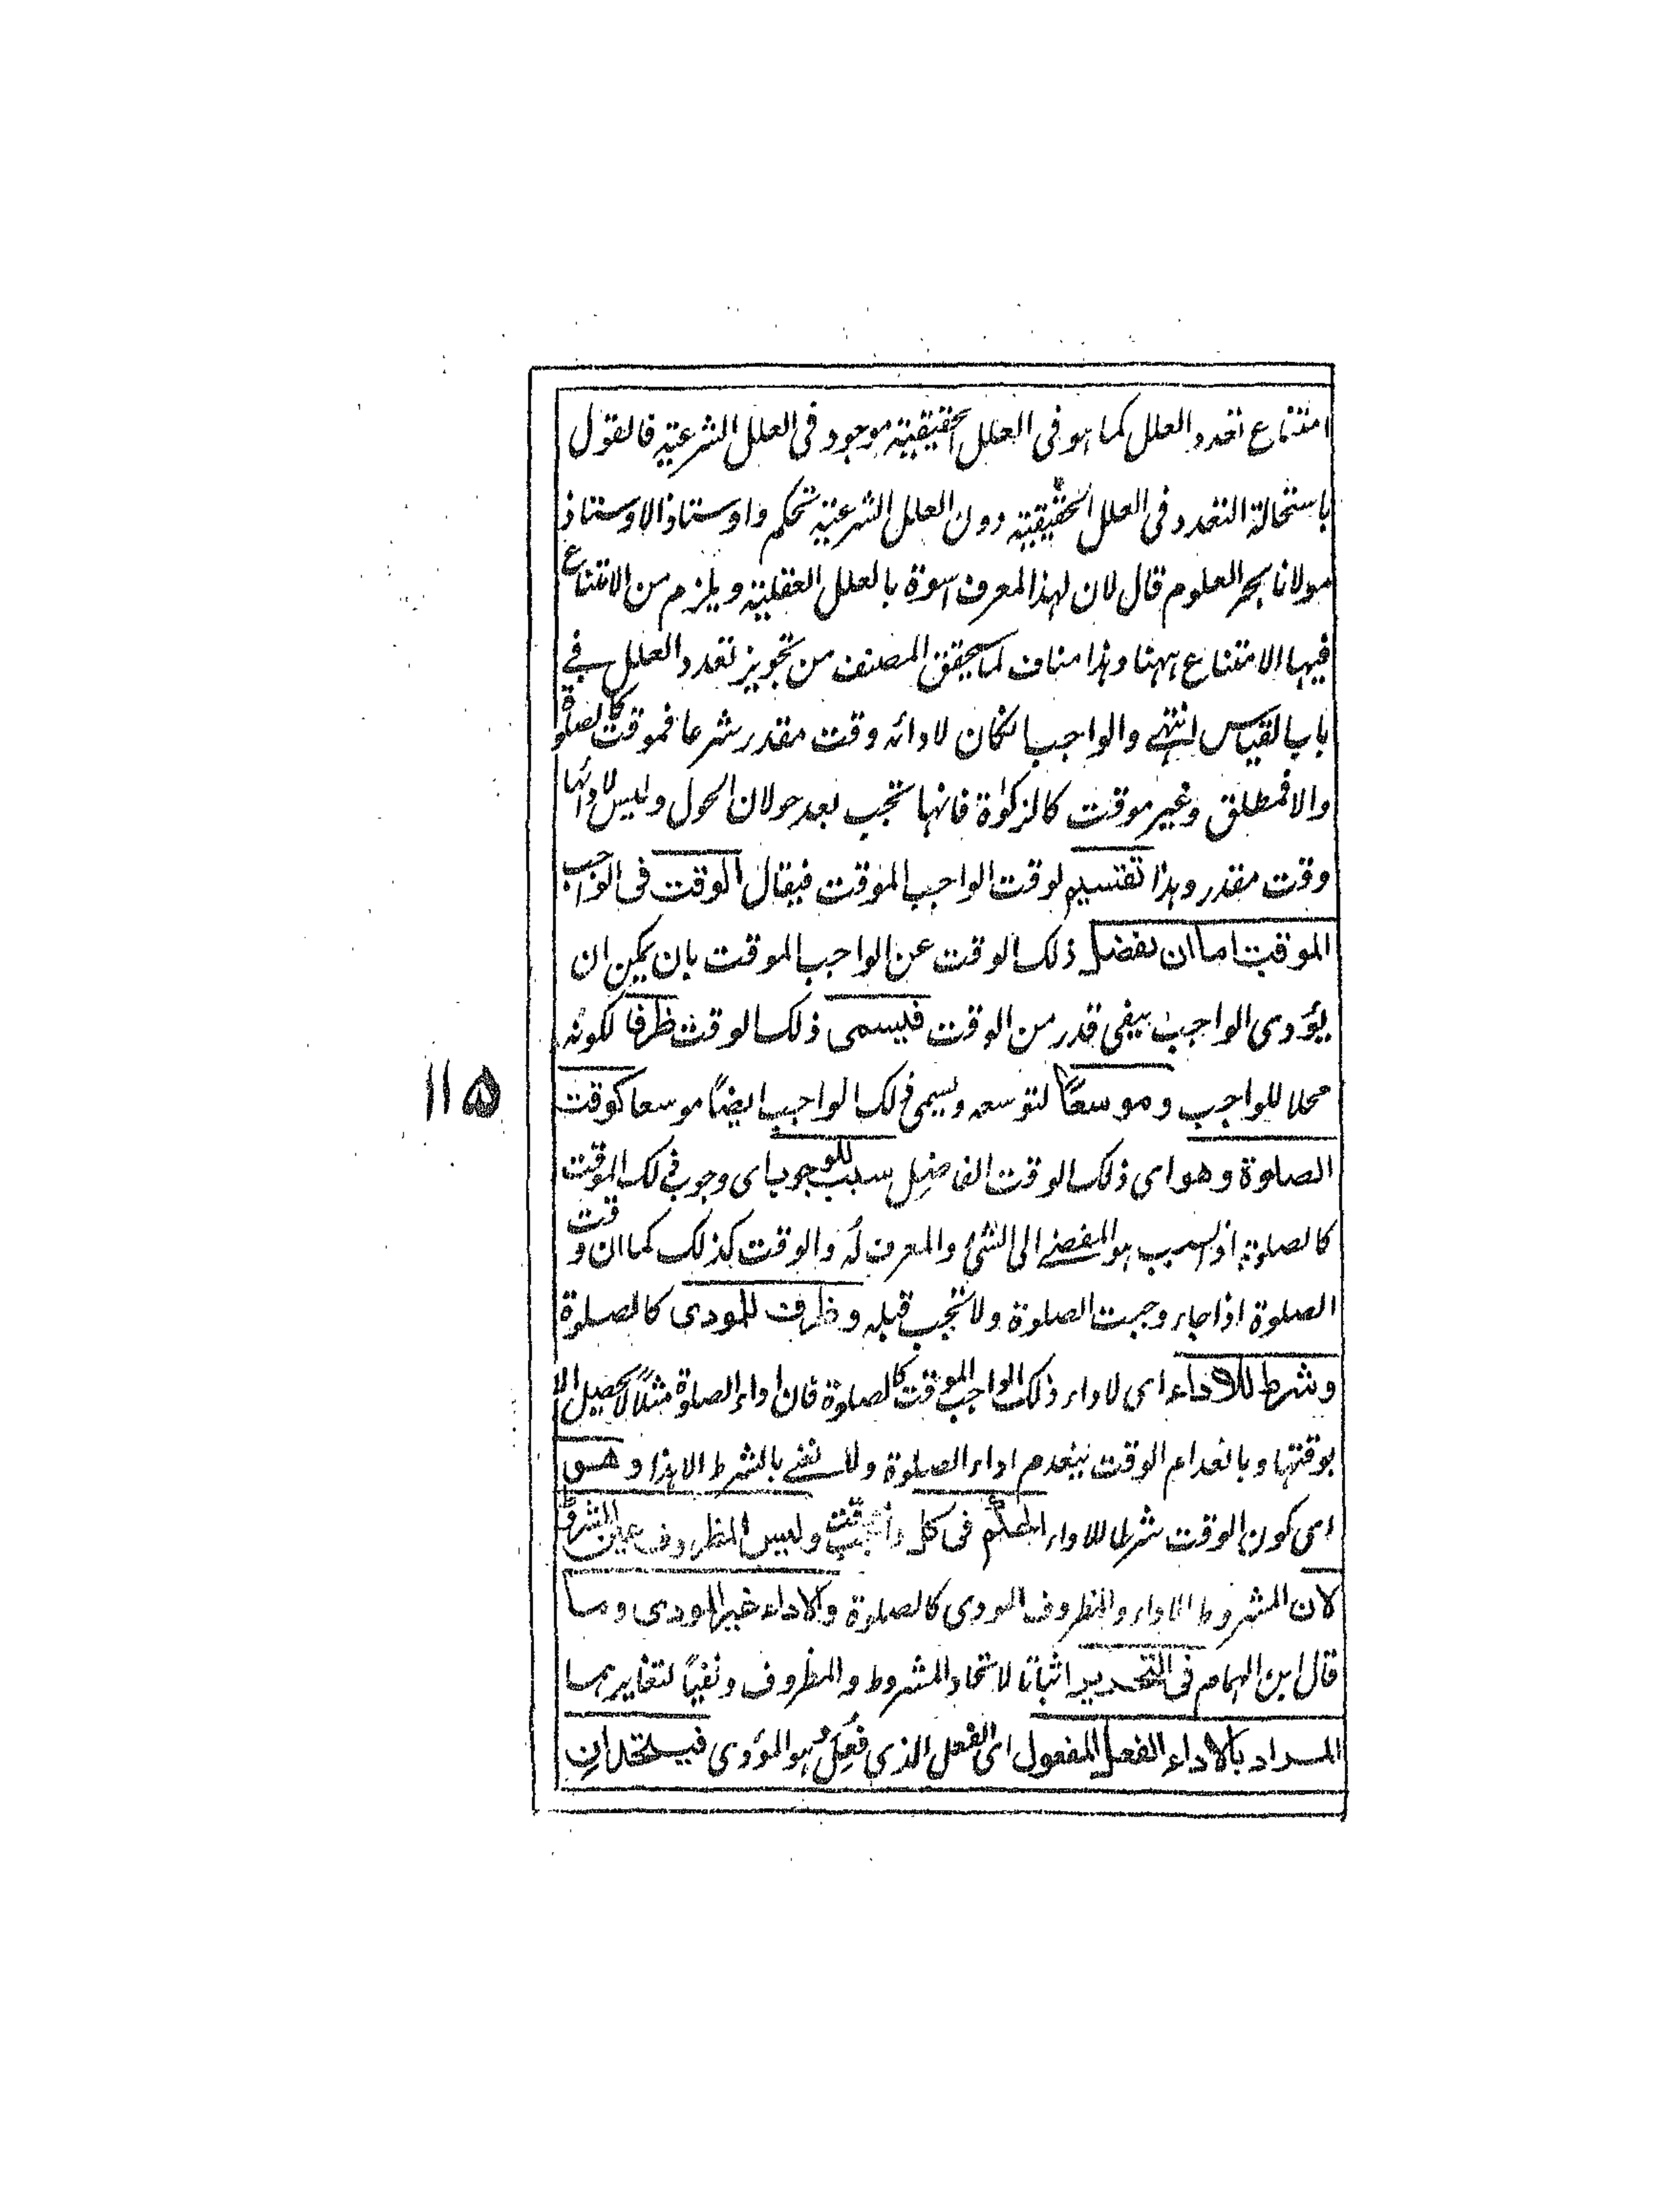 امتناع تعدد العلل كما هو فى العلل الحقيقية موجود فى العلل الشرعية فالقول
باستحالة التعدد فى العلل الحقيقية دون العلل الشرعية تحكم واوستاذ الاوستاذ
مولانا بحر العلوم قال لان لهذا المعرف اسوة بالعلل العقلية ويلزم من الامتناع
فيها الامتناع ههنا وهذا مناف لما سيحقق المصنف من تجويز تعدد العلل فى
باب القياس انتهى والواجب انكان لادائه وقت مقدر شرعا فموقت كالصلوة
والا فمطلق وغير موقت كالزكوة فانها تجب بعد حولان الحول وليس لادائها
وقت مقدر وهذا تقسيم لوقت الواجب الموقت فيقال الوقت فى الواجب
الموقت اما ان يفضل ذلك الوقت عن الواجب الموقت بان يمكن ان
يؤدى الواجب يبقى قدر من الوقت فيسمى ذلك الوقت ظرفا لكونه
محلا للواجب وموسعاً لتوسعه ويسمى ذلك الواجب ايضاً موسعا كوقت
الصلوة وهو اى ذلك الوقت الفاضل سبب للوجوب اى وجوب ذلك الموقت
كالصلوة اذ السبب هو المفضى الى الشئ والمعرف له والوقت كذلك كما ان وقت
الصلوة اذا جاء وجبت الصلوة ولا تجب قبله وظرف للمودى كالصلوة
وشرط للاداء اى لاداء ذلك الواجب الموقت كالصلوة فان اداء الصلوة مثلاً لا يحصل الا
بوقتها وبانعدام الوقت ينعدم اداء الصلوة ولا نعنى بالشرط الا هذا وهو
اى كون الوقت شرطا للاداء الحكم فى كل موقت وليس المظروف عين المشروط
لان المشروط الاداء والمظروف المودى كالصلوة والاداء غير المودى وما
قال ابن الهمام فى التحرير اثباتا لاتحاد المشروط والمظروف ونفياً لتغايرهما
المراد بالاداء الفعل المفعول اى الفعل الذى فُعِلَ هو المؤدى فيتحدان
١١٥